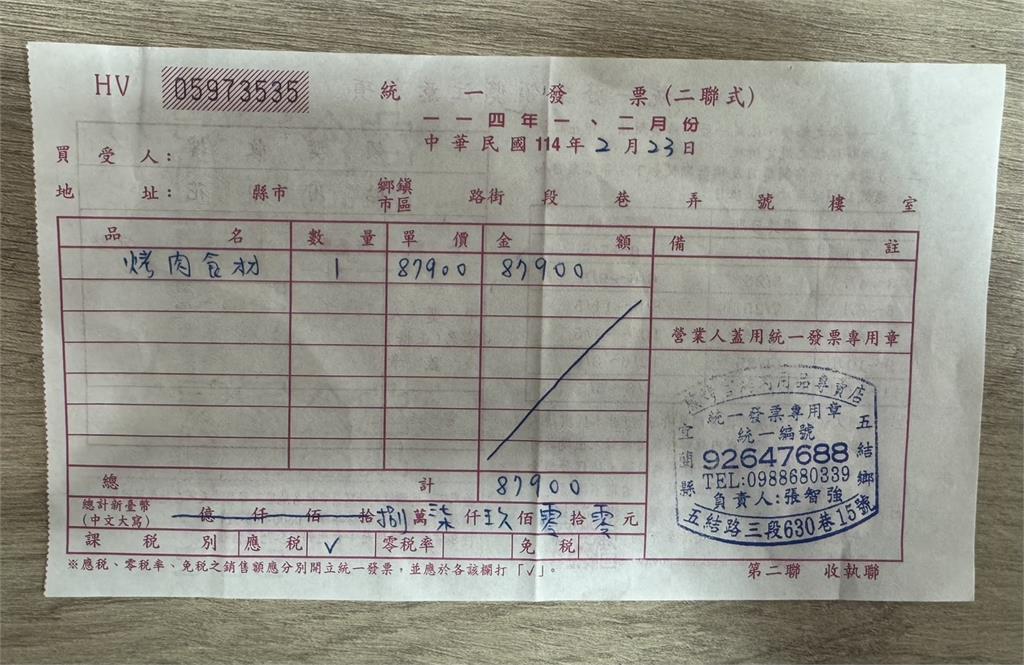 HV 05973535
統一發票(二聯式)
一一四年一、二月份
中華民國114年2月23日
買受人:
地址: 縣市 鄉鎮市區 路街 段 巷 弄 號 樓 室
品名 數量 單價 金額 備註
烤肉食材 1 87900 87900
營業人蓋用統一發票專用章
用品專賣店
統一發票專用章
統一編號
92647688
TEL:0988680339
負責人:張智強
宜蘭縣五結鄉
五結路三段630巷15號
總計 87900
總計新臺幣(中文大寫) 億仟佰拾捌萬柒仟玖佰零拾零元
課稅別 應稅 ✓ 零稅率 免稅
※應稅、零稅率、免稅之銷售額應分別開立統一發票,並應於各該欄打「✓」。
第二聯 收執聯